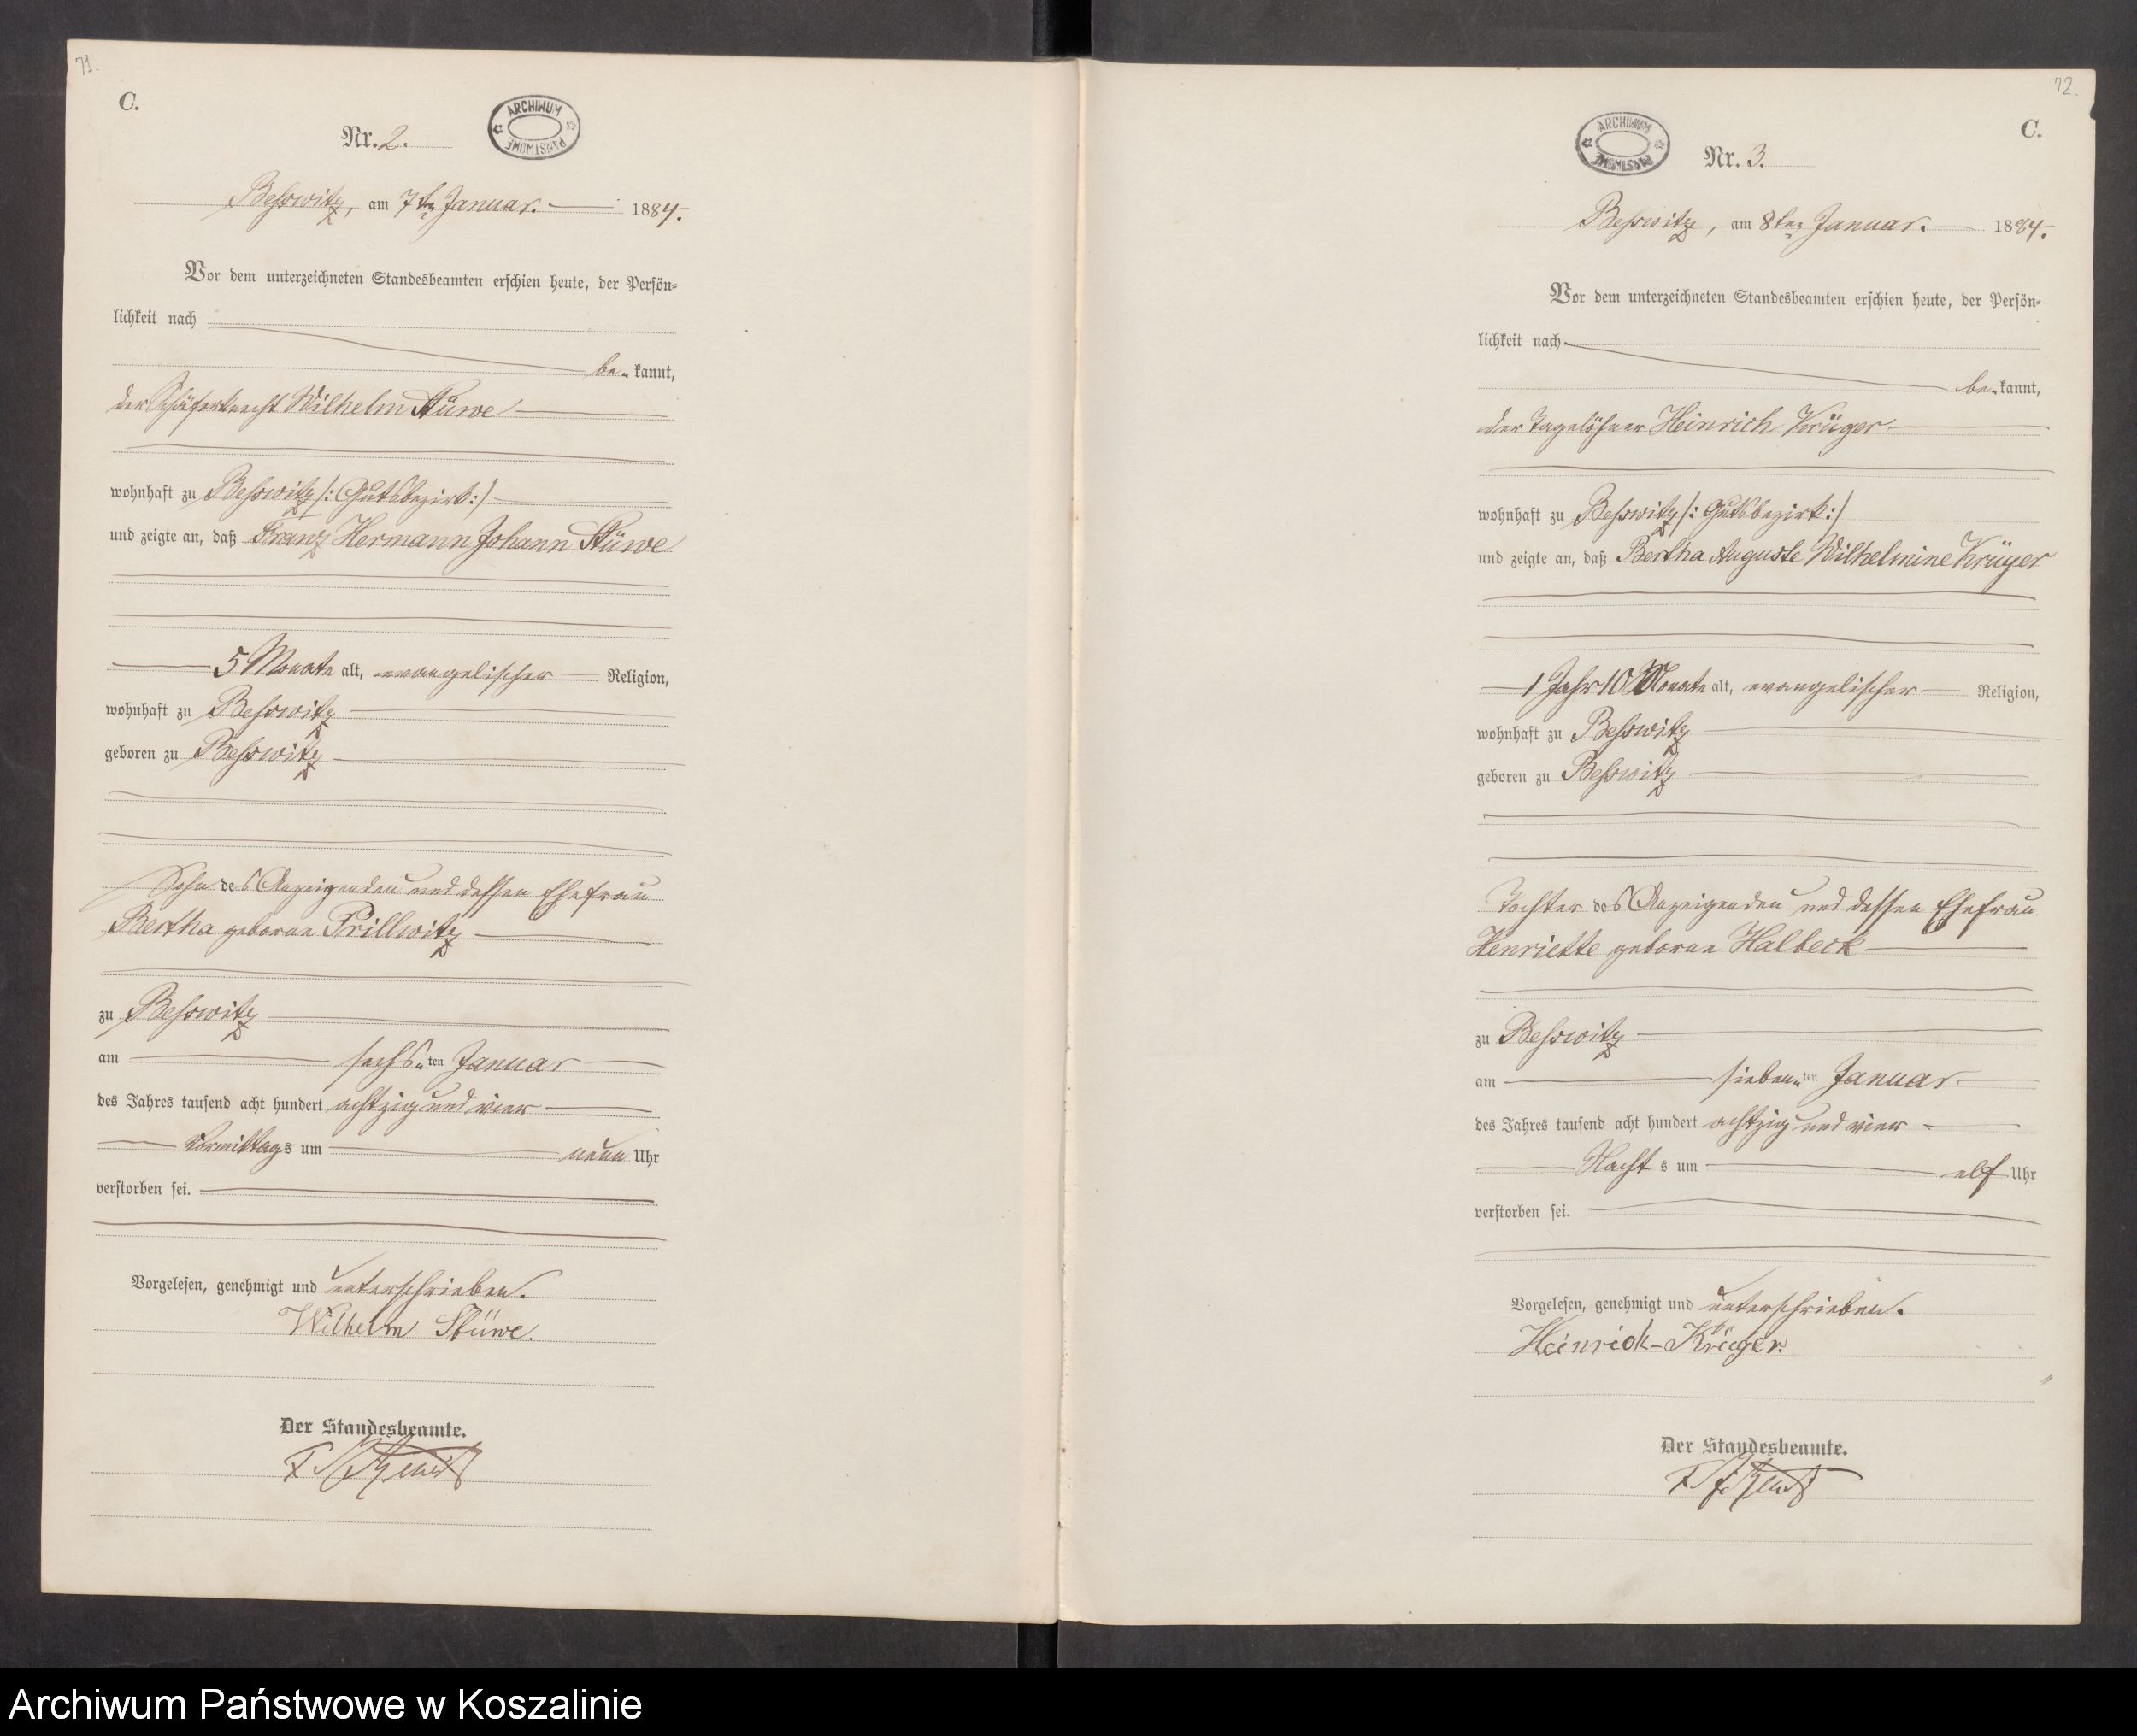 71.
C.
ARCHIWUM PAŃSTWOWE
Nr. 2.
Beßwitz, am 7ten Januar. 1884.
Vor dem unterzeichneten Standesbeamten erschien heute, der Persön-
lichkeit nach
be- kannt,
der Schäferknecht Wilhelm Stüwe
wohnhaft zu Beßwitz /: Gutsbezirk :/
und zeigte an, daß Franz Hermann Johann Stüwe
5 Monate alt, evangelischer Religion,
wohnhaft zu Beßwitz
geboren zu Beßwitz
Sohn des Anzeigenden und dessen Ehefrau
Bertha geborne Prillwitz
zu Beßwitz
am sechs-ten Januar
des Jahres tausend acht hundert achtzig und vier
Vormittags um neun Uhr
verstorben sei.
Vorgelesen, genehmigt und unterschrieben.
Wilhelm Stüwe.
Der Standesbeamte.
72.
C.
ARCHIWUM PAŃSTWOWE
Nr. 3.
Beßwitz, am 8ten Januar. 1884.
Vor dem unterzeichneten Standesbeamten erschien heute, der Persön-
lichkeit nach
be- kannt,
der Tagelöhner Heinrich Krüger
wohnhaft zu Beßwitz /: Gutsbezirk :/
und zeigte an, daß Bertha Auguste Wilhelmine Krüger
1 Jahr 10 Monate alt, evangelischer Religion,
wohnhaft zu Beßwitz
geboren zu Beßwitz
Tochter des Anzeigenden und dessen Ehefrau
Henriette geborne Halbeck
zu Beßwitz
am sieben-ten Januar
des Jahres tausend acht hundert achtzig und vier
Nachts um elf Uhr
verstorben sei.
Vorgelesen, genehmigt und unterschrieben.
Heinrich Krüger.
Der Standesbeamte.
Archiwum Państwowe w Koszalinie